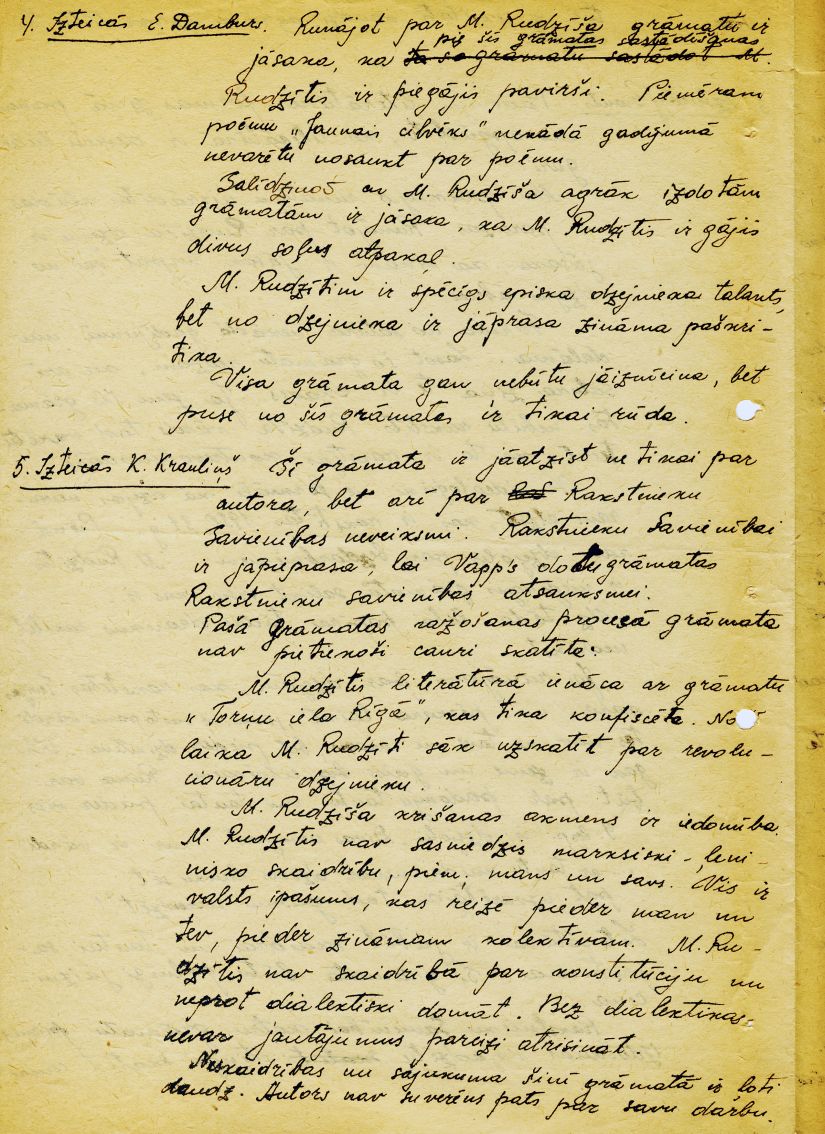 4. Izteicās E. Damburs. Runājot par M. Rudzīša grāmatu ir
pie šīs grāmatas sastādīšanas
jāsaka, ka ta so grāmatu sastādot M.
Rudzītis ir piegājis pavirši. Piemēram
poēmu „Jaunais cilvēks" nekādā gadījumā
nevarētu nosaukt par poēmu.
Salīdzinoš ar M. Rudzīša agrāk izdotām
grāmatām ir jāsaka, ka M. Rudzītis ir gājis
divus soļus atpakaļ.
M. Rudzītim ir spēcīgs episka dzejnieka talants,
bet no dzejnieka ir jāprasa zināma paškri-
tika.
Visa grāmata gan nebūtu jāiznīcina, bet
puse no šīs grāmatas ir tikai rūda.
5. Izteicās K. Krauliņš Šī grāmata ir jāatzīst ne tikai par
autora, bet arī par Rakstnieku
Savienības neveiksmi. Rakstnieku Savienībai
ir jāpieprasa, lai Vapp's dotu grāmatas
Rakstnieku savienības atsauksmei.
Pašā grāmatas ražošanas procesā grāmata
nav pietiekoši cauri skatīta.
M. Rudzītis literātūrā ienāca ar grāmatu
„Torņu iela Rīgā", kas tika konfiscēta. No šī
laika M. Rudzīti sāk uzskatīt par revolu-
cionāru dzejnieku.
M. Rudzīša krišanas akmens ir iedomība.
M. Rudzītis nav sasniedzis marksiski-ļeni-
nisko skaidrību, piem. mans un savs. Vis ir
valsts īpašums, kas reizē pieder man un
tev, pieder zināmam kolektīvam. M. Ru-
dzītis nav skaidrībā par konstitūciju un
neprot dialektiski domāt. Bez dialektikas
nevar jautājumus pareizi atrisināt.
Neskaidrības un sajukuma šinī grāmatā ir ļoti
daudz. Autors nav suverēns pats par savu darbu.